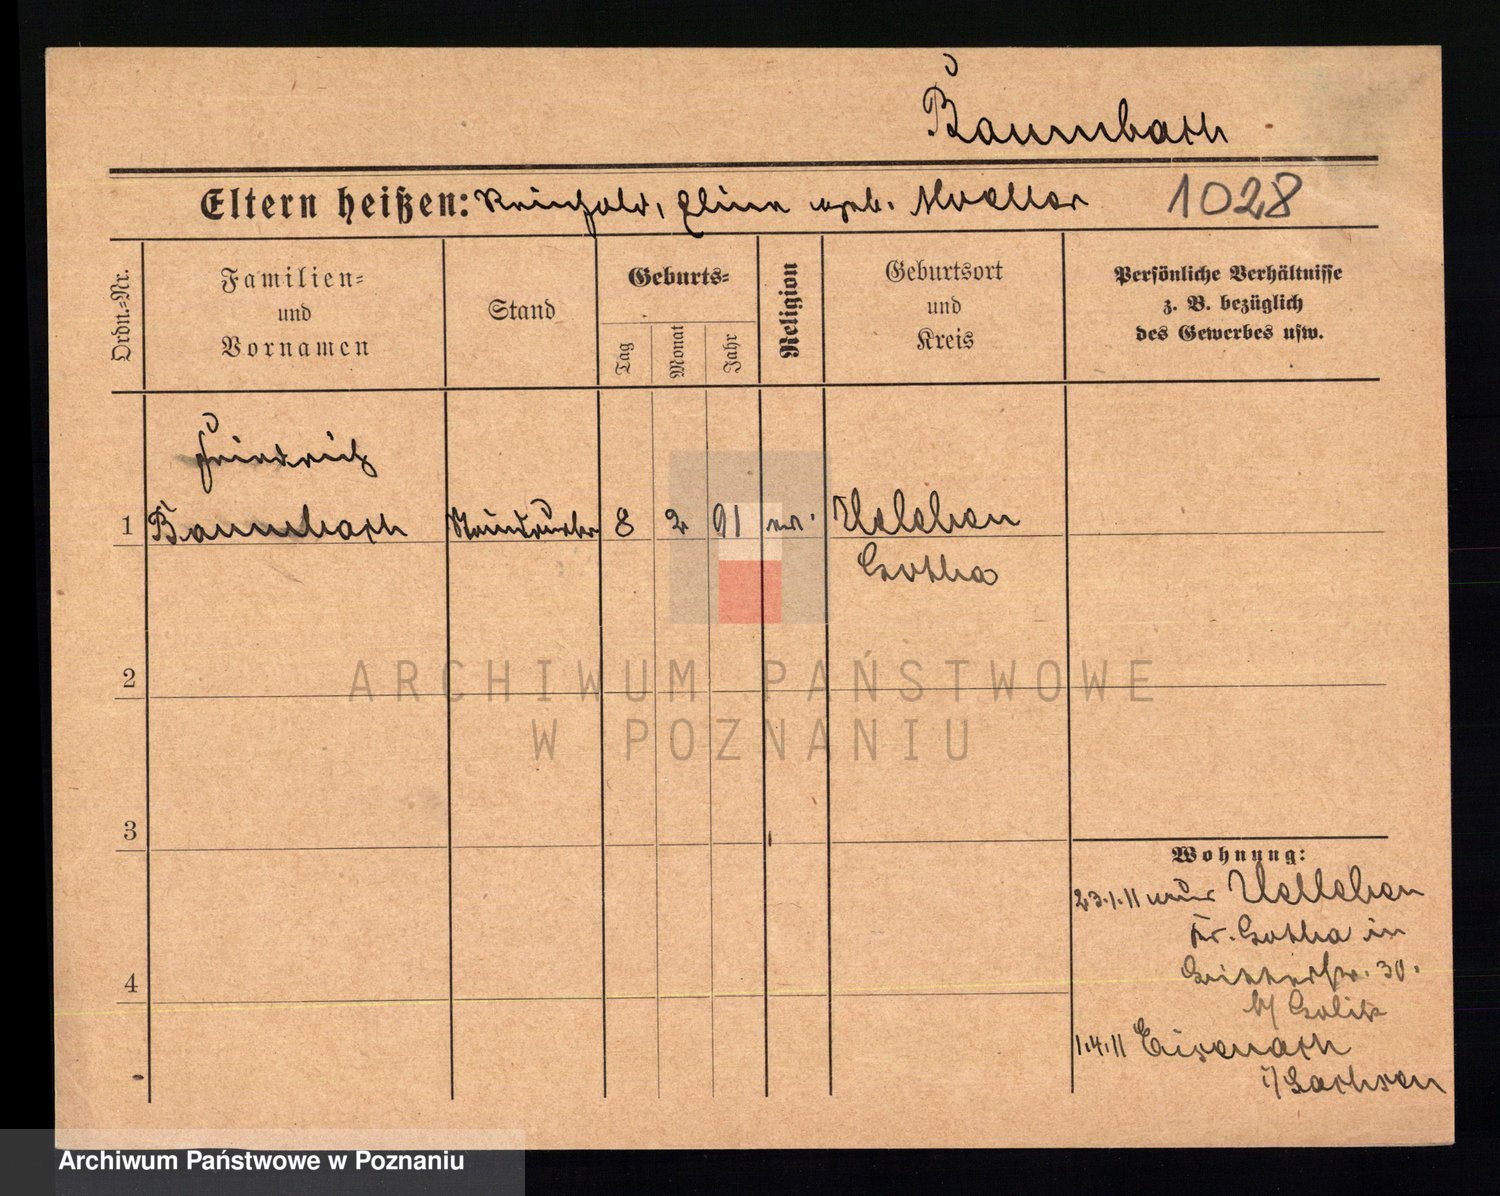 Baumbach
Eltern heißen: Reinhold, Eline geb. Moeller 1028
Ordn.=Nr.
Familien=
und
Vornamen
Stand
Geburts=
Tag
Monat
Jahr
Religion
Geburtsort
und
Kreis
Persönliche Verhältnisse
z. B. bezüglich
des Gewerbes usw.
Friedrich
1 Baumbach Steindrucker 8 2 91 ev. Uelleben
Gotha
2
3
4
Wohnung:
23.1.11 Uelleben
Kr. Gotha in
30.
b/
1.4.11 Eisenach
i/Sachsen
ARCHIWUM PAŃSTWOWE
W POZNANIU
Archiwum Państwowe w Poznaniu